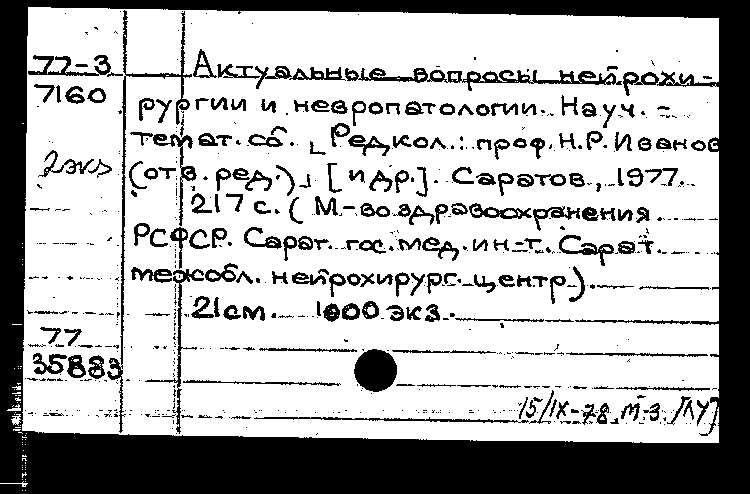 77-3 Актуальные вопросы нейрохи-
7160 рургии и невропатологии. Науч.-
темат. сб. [Редкол.: проф. Н.Р. Иванов
2 экз (отв. ред.)] [и др.]. Саратов, 1977.
217 с. (М-во здравоохранения
РСФСР. Сарат. гос. мед. ин-т. Сарат.
межобл. нейрохирург. центр).
21 см. 1000 экз.
77
35883
15/IX-78 М-3 [ЛУ]